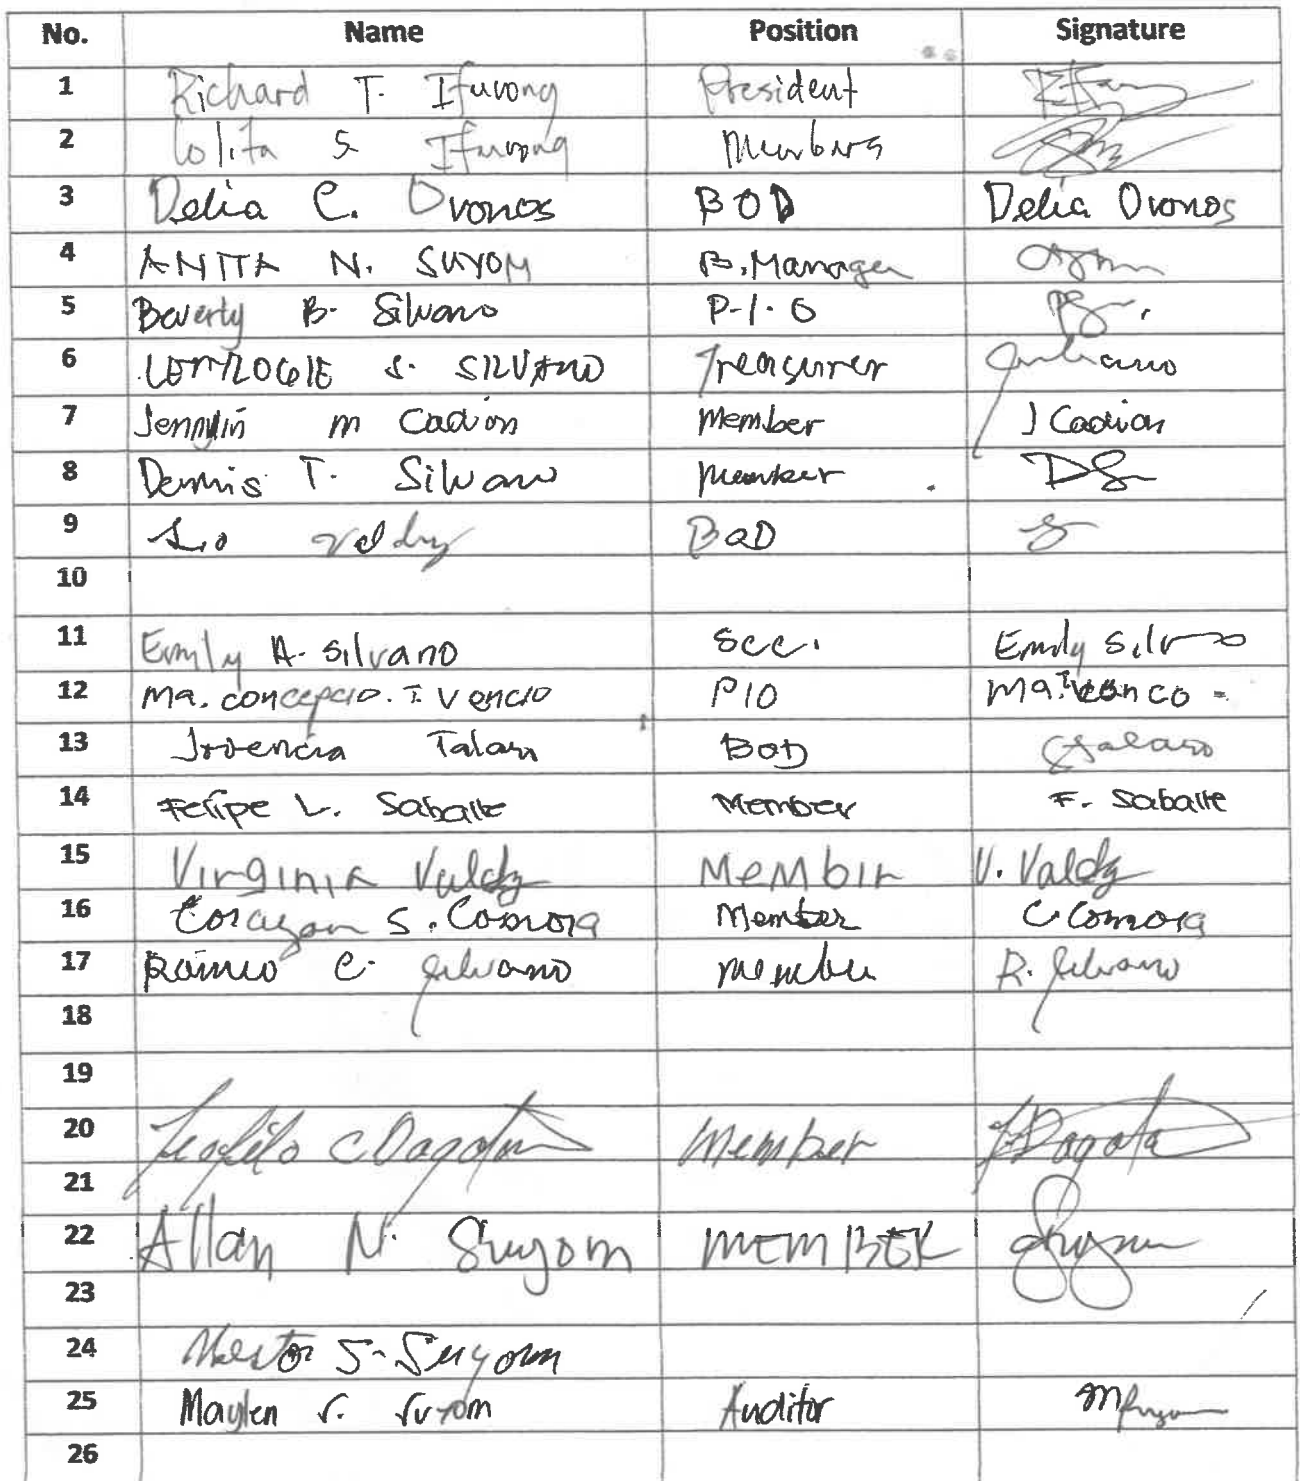 No. Name Position Signature
1 Richard T. Ifurong President
2 Lolita S Ifurong Members
3 Delia C. Oronos BOD Delia Oronos
4 ANITA N. SUYOM B. Manager
5 Beverly B. Silvano P-I.O
6 S. SILVANO Treasurer
7 Jennylin M Cadion Member J Cadion
8 Dennis T. Silvano Member DS
9 BOD
10
11 Emily A. Silvano Sec. Emily Silvano
12 Ma. concepcio. I Vencio PIO
13 Jovencia Talaro BOD
14 Felipe L. Saballe Member F. Saballe
15 Virginia Valdz MeMbir V. Valdz
16 Corazon S. Comora Member C. Comora
17 Ramio C. Silvano member R. Silvano
18
19
20 Teofilo C Dagatan Member
21
22 Allan N. Suyom MEMBER
23
24 Nestor S. Suyom
25 Maylen S. Suyom Auditor
26